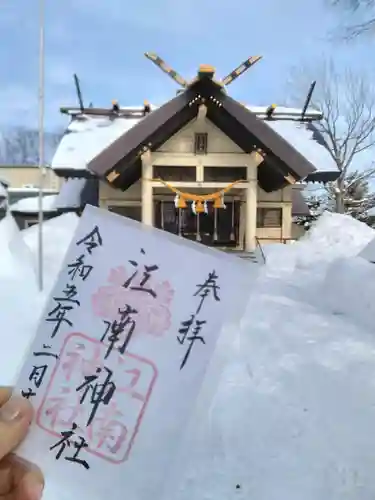 奉拝
江南神社
令和五年二月十
江南
神社